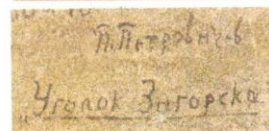 П. Петровичев
"Уголок Загорска